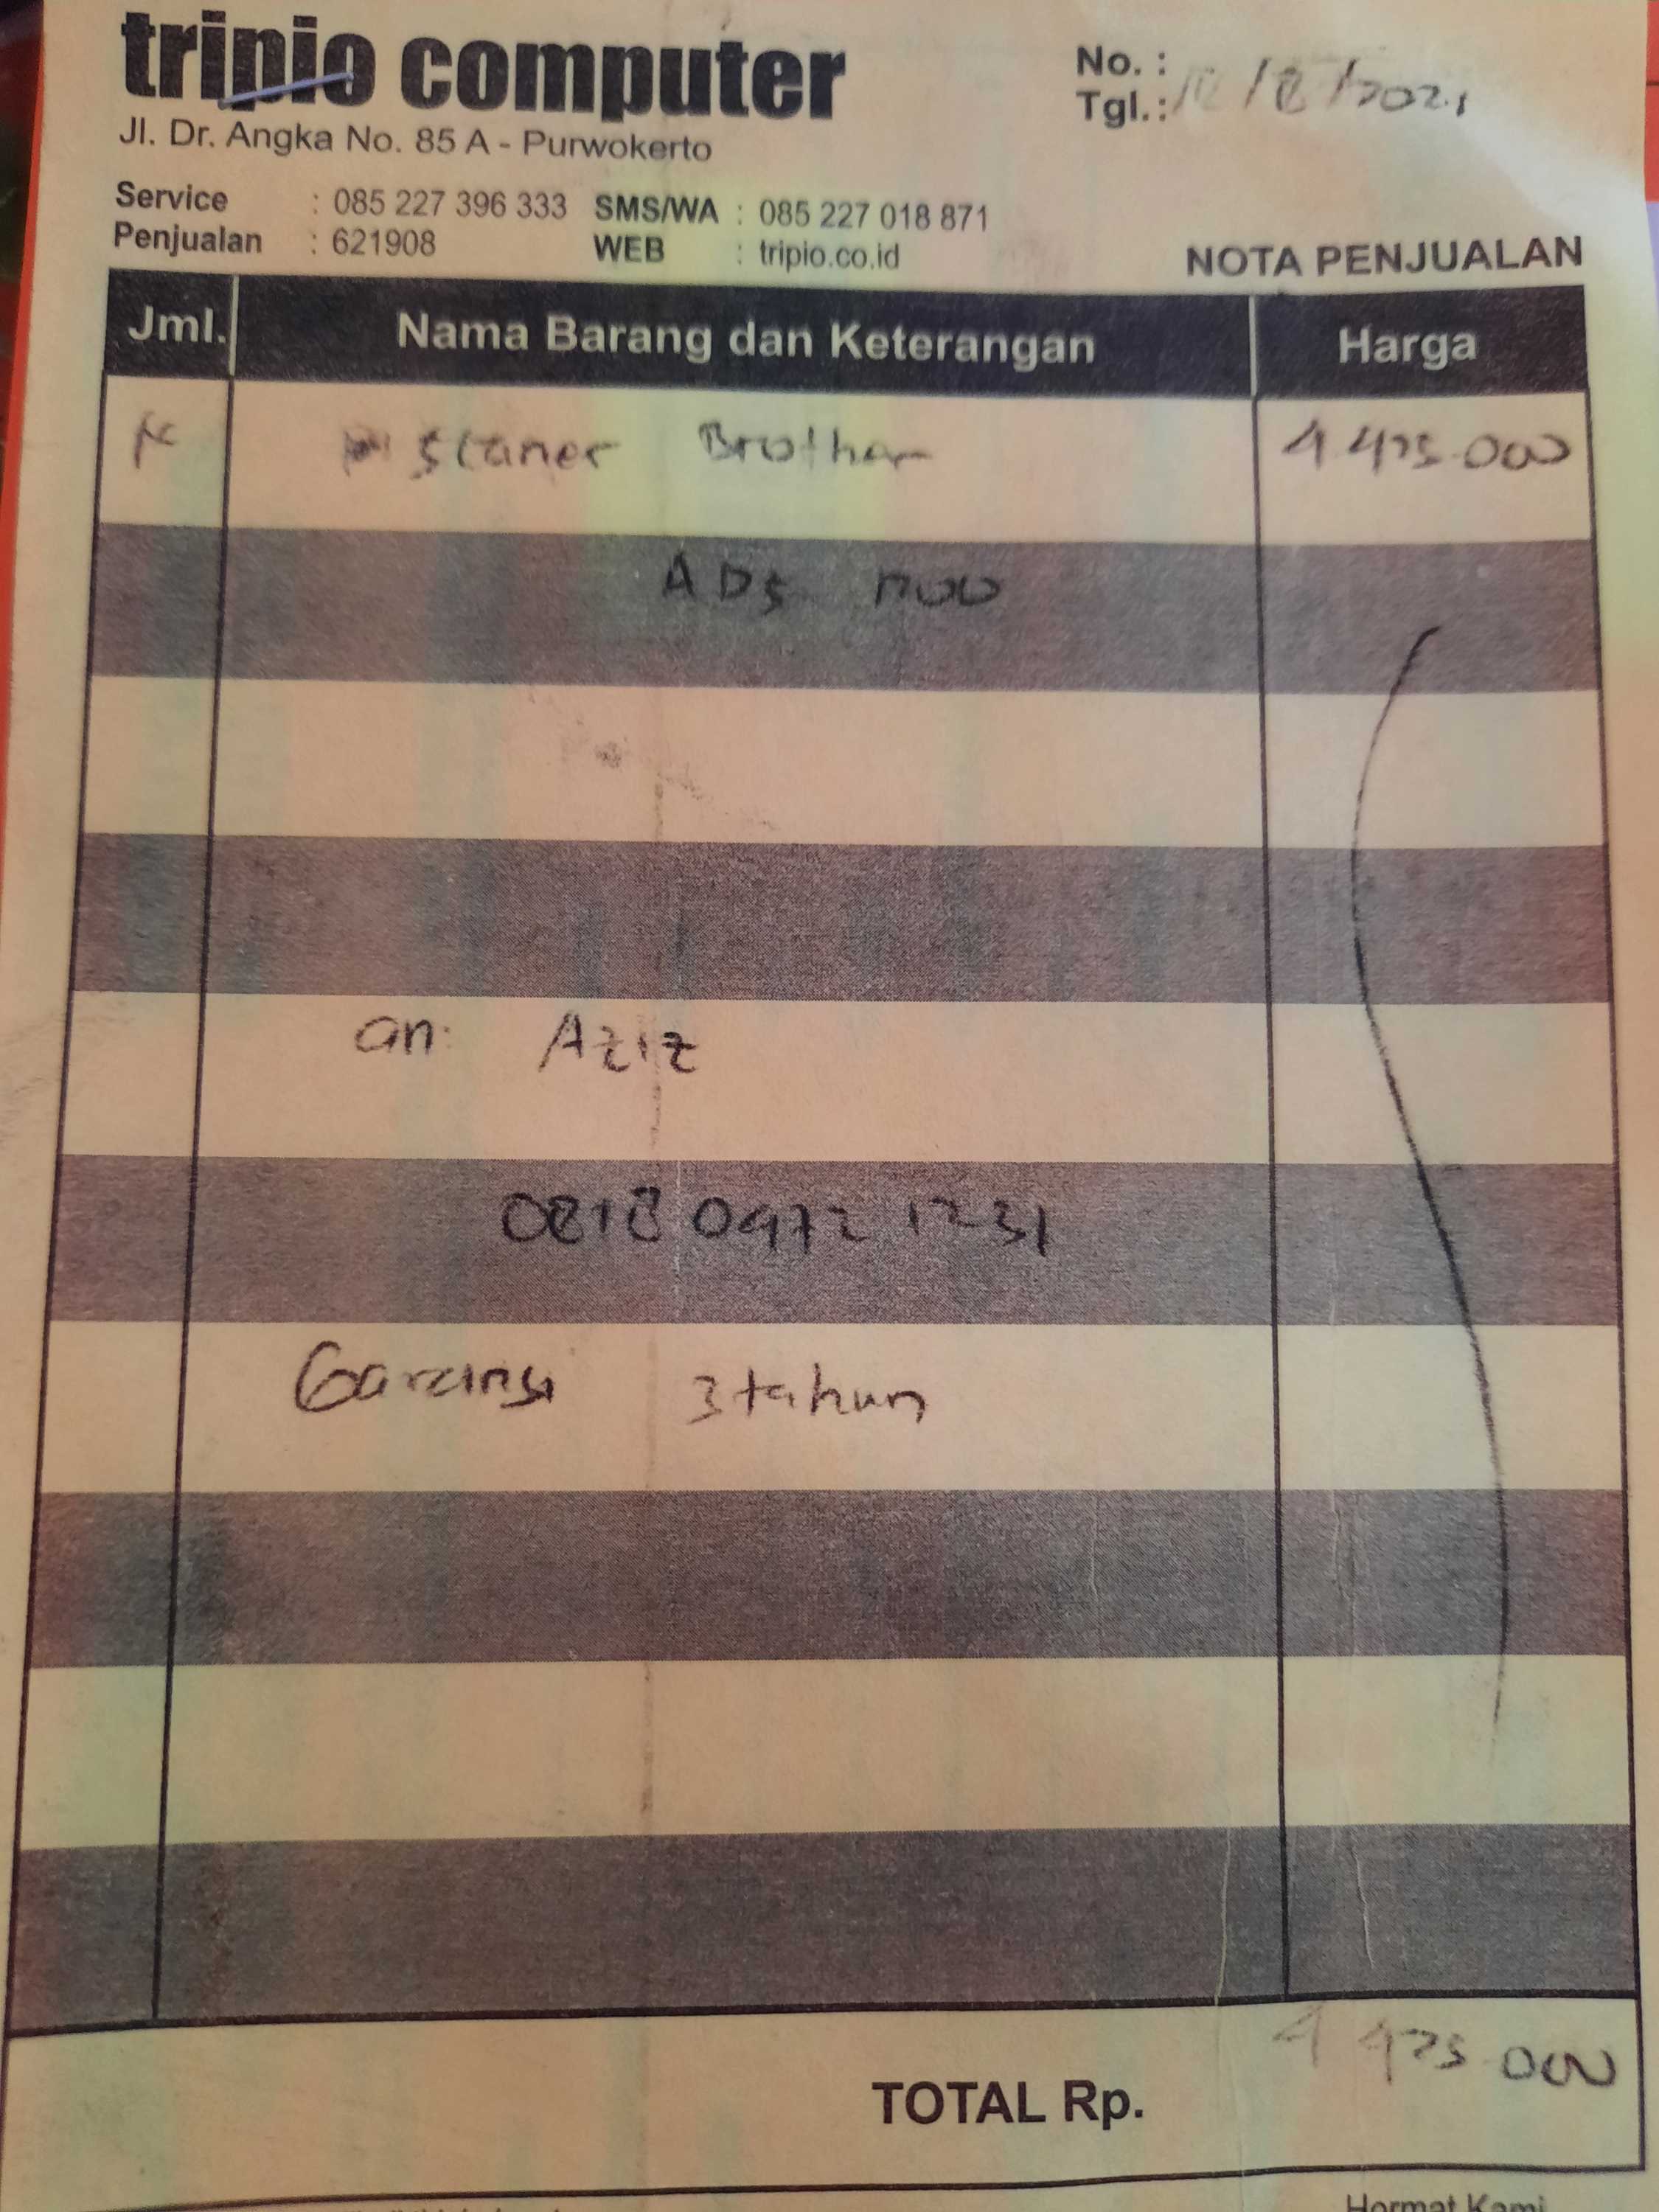 tripio computer
No. :
Tgl. : /8/2021
Jl. Dr. Angka No. 85 A - Purwokerto
Service : 085 227 396 333 SMS/WA : 085 227 018 871
Penjualan : 621908 WEB : tripio.co.id
NOTA PENJUALAN
Jml. Nama Barang dan Keterangan Harga
Scaner Brother 4 475.000
ADS 1700
an: Aziz
0818 0472 1231
Garansi 3 tahun
4 475 000
TOTAL Rp.
Hormat Kami